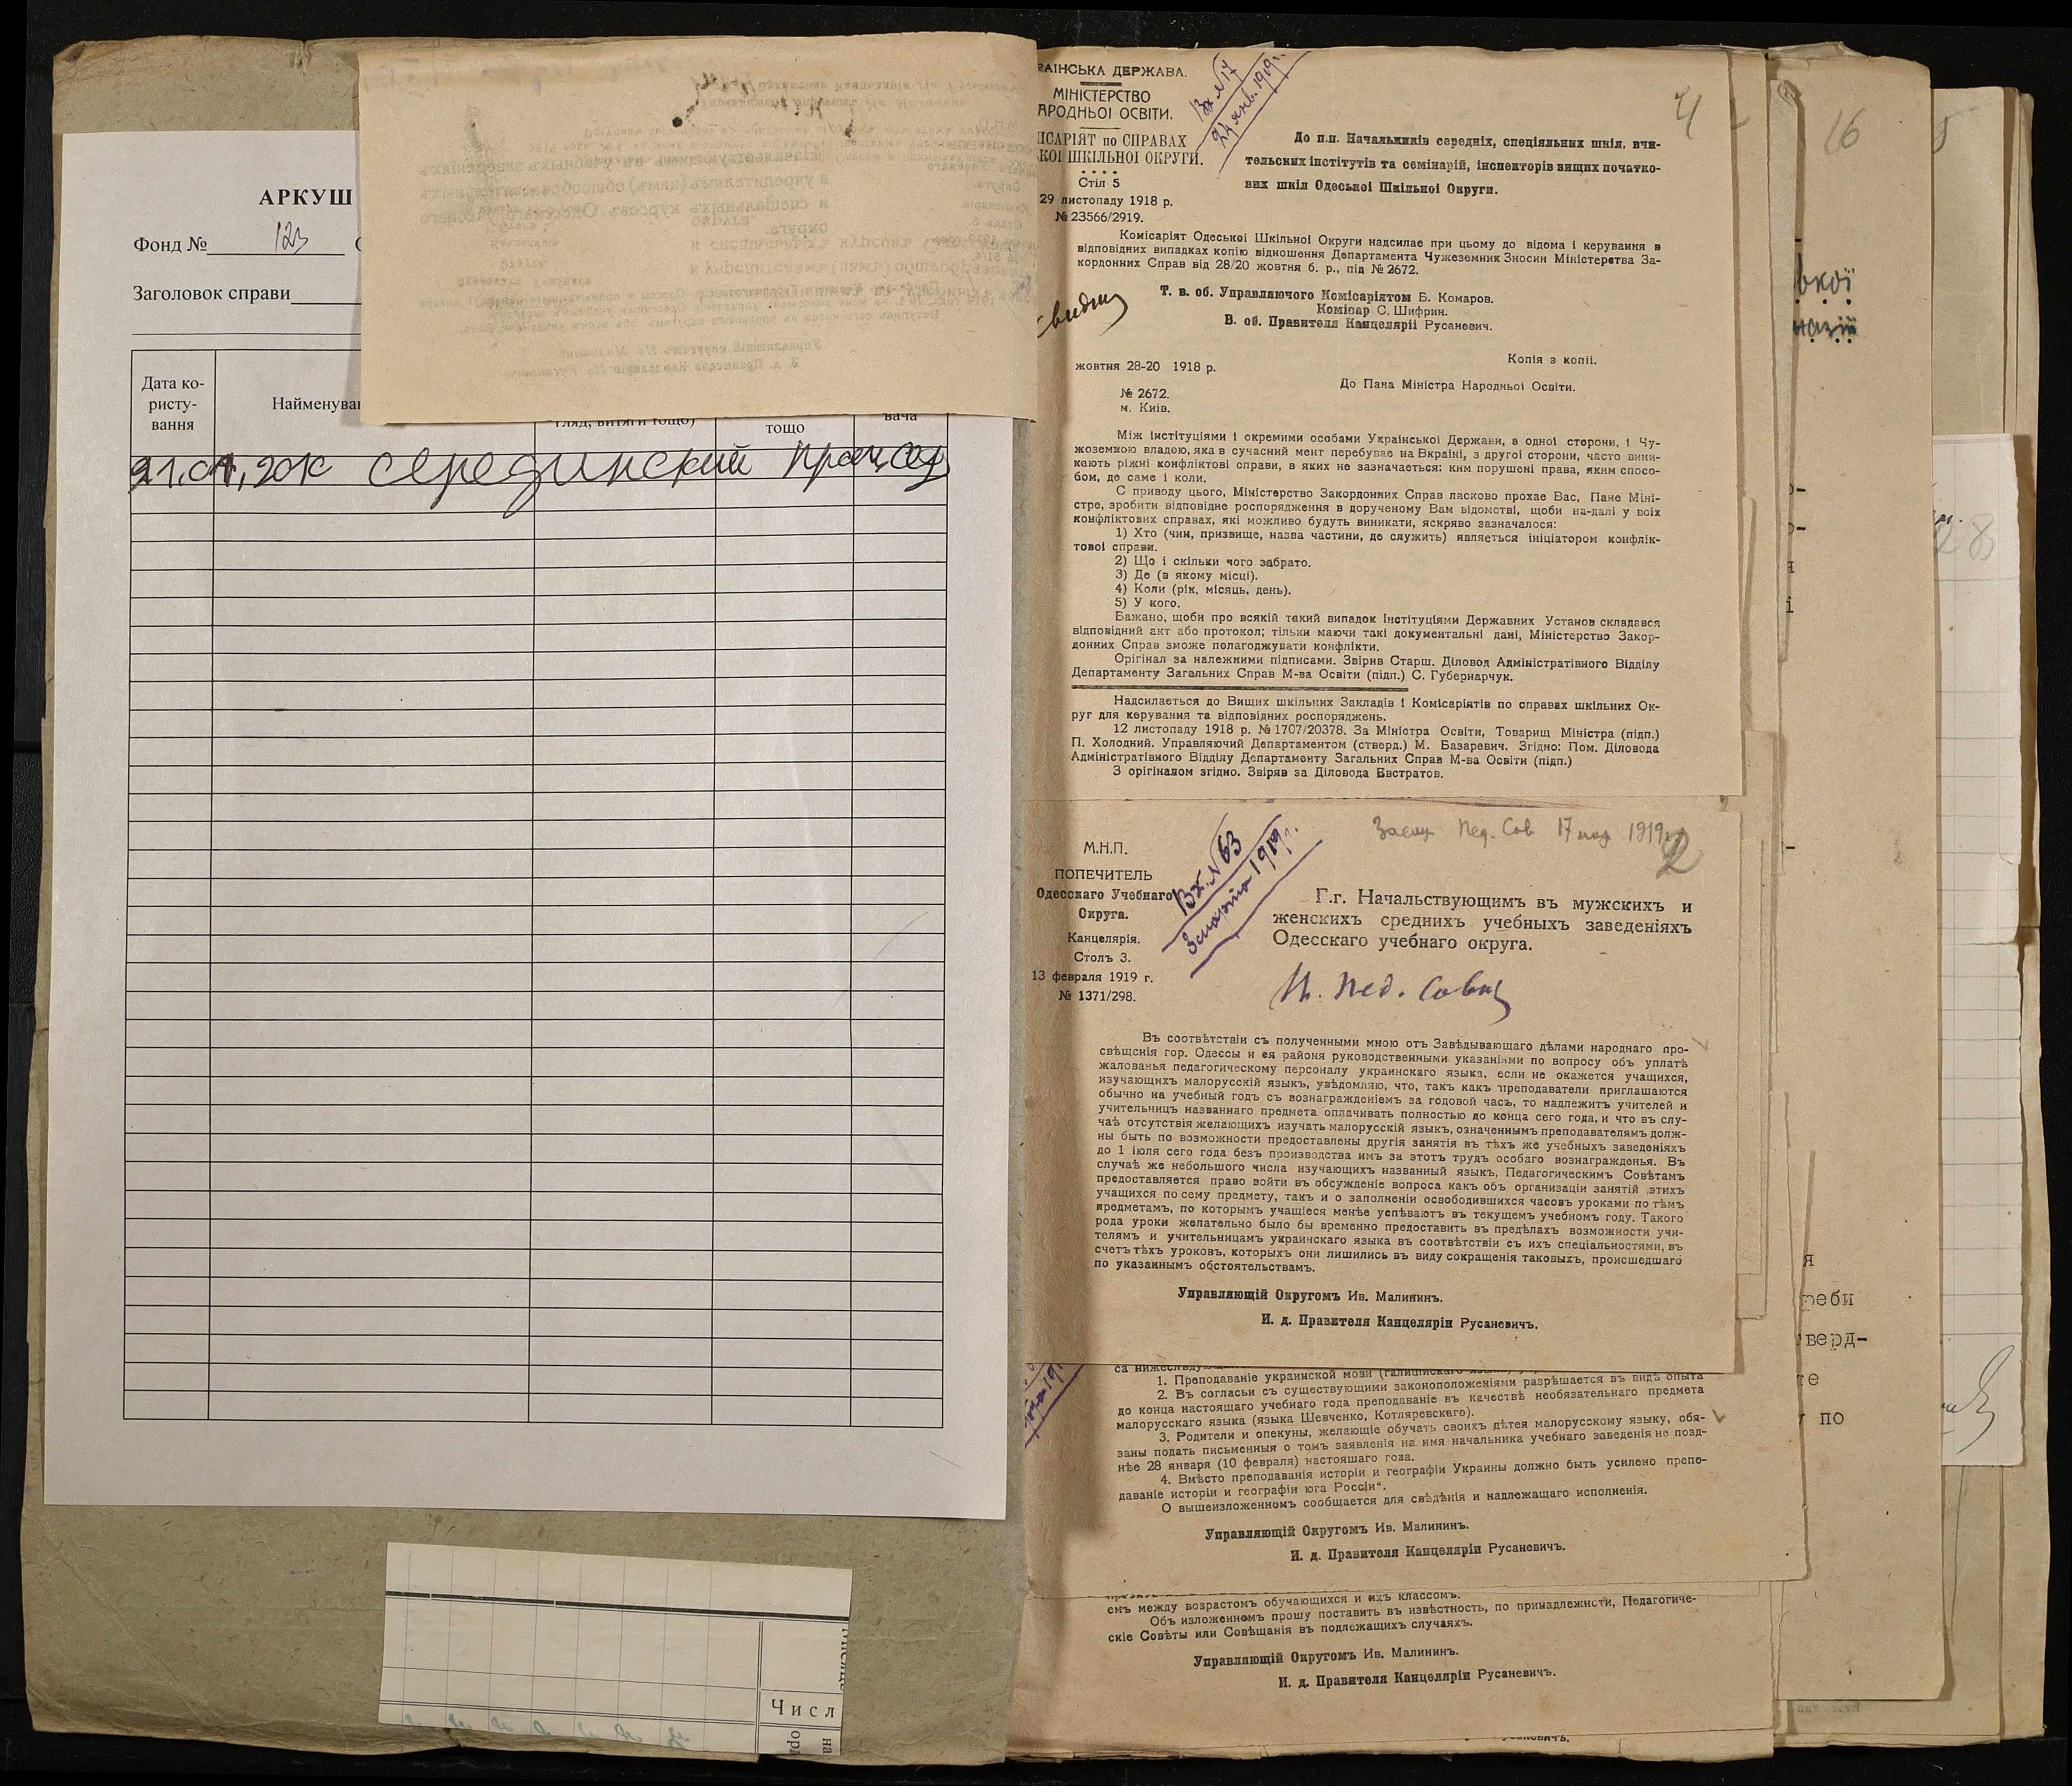 АРКУШ
Фонд № 123
Заголовок справи
Дата ко-
ристу-
вання
Найменува
гляд, витяги тощо)
тощо
вача
Числ
РАЇНСЬКА ДЕРЖАВА.
МІНІСТЕРСТВО
АРОДНЬОІ ОСВІТИ.
ІСАРІЯТ по СПРАВАХ
КОІ ШКІЛЬНОІ ОКРУГИ.
Стіл 5
29 листопаду 1918 р.
№ 23566/2919.
Вх. № 17
24 янв. 1919 г.
4
До п.п. Начальників середніх, спеціяльних шкіл, вчи-
тельских інститутів та семінарій, інспекторів вищих початко-
вих шкіл Одеської Шкільної Округи.
Комісаріят Одеської Шкільної Округи надсилає при цьому до відома і керування в
відповідних випадках копію відношення Департамента Чужеземник Зносин Міністерства За-
кордонних Справ від 28/20 жовтня б. р., під № 2672.
Т. в. об. Управляючого Комісаріятом Б. Комаров.
Комісар С. Шифрин.
В. об. Правителя Канцелярії Русаневич.
жовтня 28-20 1918 р.
Копія з копії.
№ 2672.
м. Київ.
До Пана Міністра Народньоі Освіти.
Між інституціями і окремими особами Української Держави, в одної сторони, і Чу-
жоземною владою, яка в сучасний мент перебуває на Вкраїні, з другої сторони, часто вини-
кають ріжні конфліктові справи, в яких не зазначається: ким порушені права, яким спосо-
бом, де саме і коли.
С приводу цього, Міністерство Закордонних Справ ласкаво прохає Вас, Пане Міні-
стре, зробити відповідне роспорядження в дорученому Вам відомстві, щоби на-далі у всіх
конфліктових справах, які можливо будуть виникати, яскряво зазначалося:
1) Хто (чин, призвище, назва частини, де служить) являється ініціатором конфлік-
тової справи.
2) Що і скільки чого забрато.
3) Де (в якому місці).
4) Коли (рік, місяць, день).
5) У кого.
Бажано, щоби про всякій такий випадок Інституціями Державних Установ складався
відповідний акт або протокол; тільки маючи такі документальні дані, Міністерство Закор-
донних Справ зможе полагоджувати конфлікти.
Орігінал за належними підписами. Звірив Старш. Діловод Адміністратівного Відділу
Департаменту Загальних Справ М-ва Освіти (підп.) С. Губернарчук.
Надсилається до Вищих шкільних Закладів і Комісаріятів по справах шкільних Ок-
руг для керування та відповідних роспоряджень.
12 листопаду 1918 р. № 1707/20378. За Міністра Освіти, Товарищ Міністра (підп.)
П. Холодний. Управляючий Департаментом (стверд.) М. Базаревич. Згідно: Пом. Діловода
Адміністратівного Відділу Департаменту Загальних Справ М-ва Освіти (підп.)
З орігіналом згідно. Звіряв за Діловода Евстратов.
М.Н.П.
ПОПЕЧИТЕЛЬ
Одесскаго Учебнаго
Округа.
Канцелярія.
Столъ 3.
13 февраля 1919 г.
№ 1371/298.
Вх. № 63
1919 г.
Пед. Сов 17 1919
2
Г.г. Начальствующимъ въ мужскихъ и
женскихъ среднихъ учебныхъ заведеніяхъ
Одесскаго учебнаго округа.
Въ соотвѣтствіи съ полученными мною отъ Завѣдывающаго дѣлами народнаго про-
свѣщенія гор. Одессы и ея района руководственными указаніями по вопросу объ уплатѣ
жалованья педагогическому персоналу украинскаго языка, если не окажется учащихся,
изучающихъ малорусскій языкъ, увѣдомляю, что, такъ какъ преподаватели приглашаются
обычно на учебный годъ съ вознагражденіемъ за годовой часъ, то надлежитъ учителей и
учительницъ названнаго предмета оплачивать полностью до конца сего года, и что въ слу-
чаѣ отсутствія желающихъ изучать малорусскій языкъ, означеннымъ преподавателямъ долж-
ны быть по возможности предоставлены другія занятія въ тѣхъ же учебныхъ заведеніяхъ
до 1 іюля сего года безъ производства имъ за этотъ трудъ особаго вознагражденья. Въ
случаѣ же небольшого числа изучающихъ названный языкъ, Педагогическимъ Совѣтамъ
предоставляется право войти въ обсужденіе вопроса какъ объ организаціи занятій этихъ
учащихся по сему предмету, такъ и о заполненіи освободившихся часовъ уроками по тѣмъ
предметамъ, по которымъ учащіеся менѣе успѣваютъ въ текущемъ учебномъ году. Такого
рода уроки желательно было бы временно предоставить въ предѣлахъ возможности учи-
телямъ и учительницамъ украинскаго языка въ соотвѣтствіи съ ихъ спеціальностями, въ
счетъ тѣхъ уроковъ, которыхъ они лишились въ виду сокращенія таковыхъ, происшедшаго
по указаннымъ обстоятельствамъ.
Управляющій Округомъ Ив. Малининъ.
И. д. Правителя Канцеляріи Русаневичъ.
1. Преподаваніе украинской мови (галиційскаго
2. Въ согласьи съ существующими законоположеніями разрѣшается въ видѣ опыта
до конца настоящаго учебнаго года преподаваніе въ качествѣ необязательнаго предмета
малорусскаго языка (языка Шевченко, Котляревскаго).
3. Родители и опекуны, желающіе обучать своихъ дѣтея малорусскому языку, обя-
заны подать письменныя о томъ заявленія на имя начальника учебнаго заведенія не позд-
нѣе 28 января (10 февраля) настоящаго года.
4. Вмѣсто преподаванія исторіи и географіи Украины должно быть усилено препо-
даваніе исторіи и географіи юга Россіи“.
О вышеизложенномъ сообщается для свѣдѣнія и надлежащаго исполненія.
Управляющій Округомъ Ив. Малининъ.
И. д. Правителя Канцеляріи Русаневичъ.
емъ между возрастомъ обучающихся и ихъ классомъ.
Объ изложенномъ прошу поставить въ извѣстность, по принадлежности, Педагогиче-
скіе Совѣты или Совѣщанія въ подлежащихъ случаяхъ.
Управляющій Округомъ Ив. Малининъ.
И. д. Правителя Канцеляріи Русаневичъ.
16
реби
верд-
те
по
28